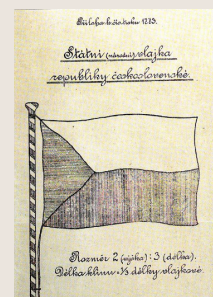 Příloha k čís. tisku 1283.
Státní (národní) vlajka
republiky československé.
Rozměr 2 (výška) : 3 (délka).
Délka klínu = ⅓ délky vlajkové.